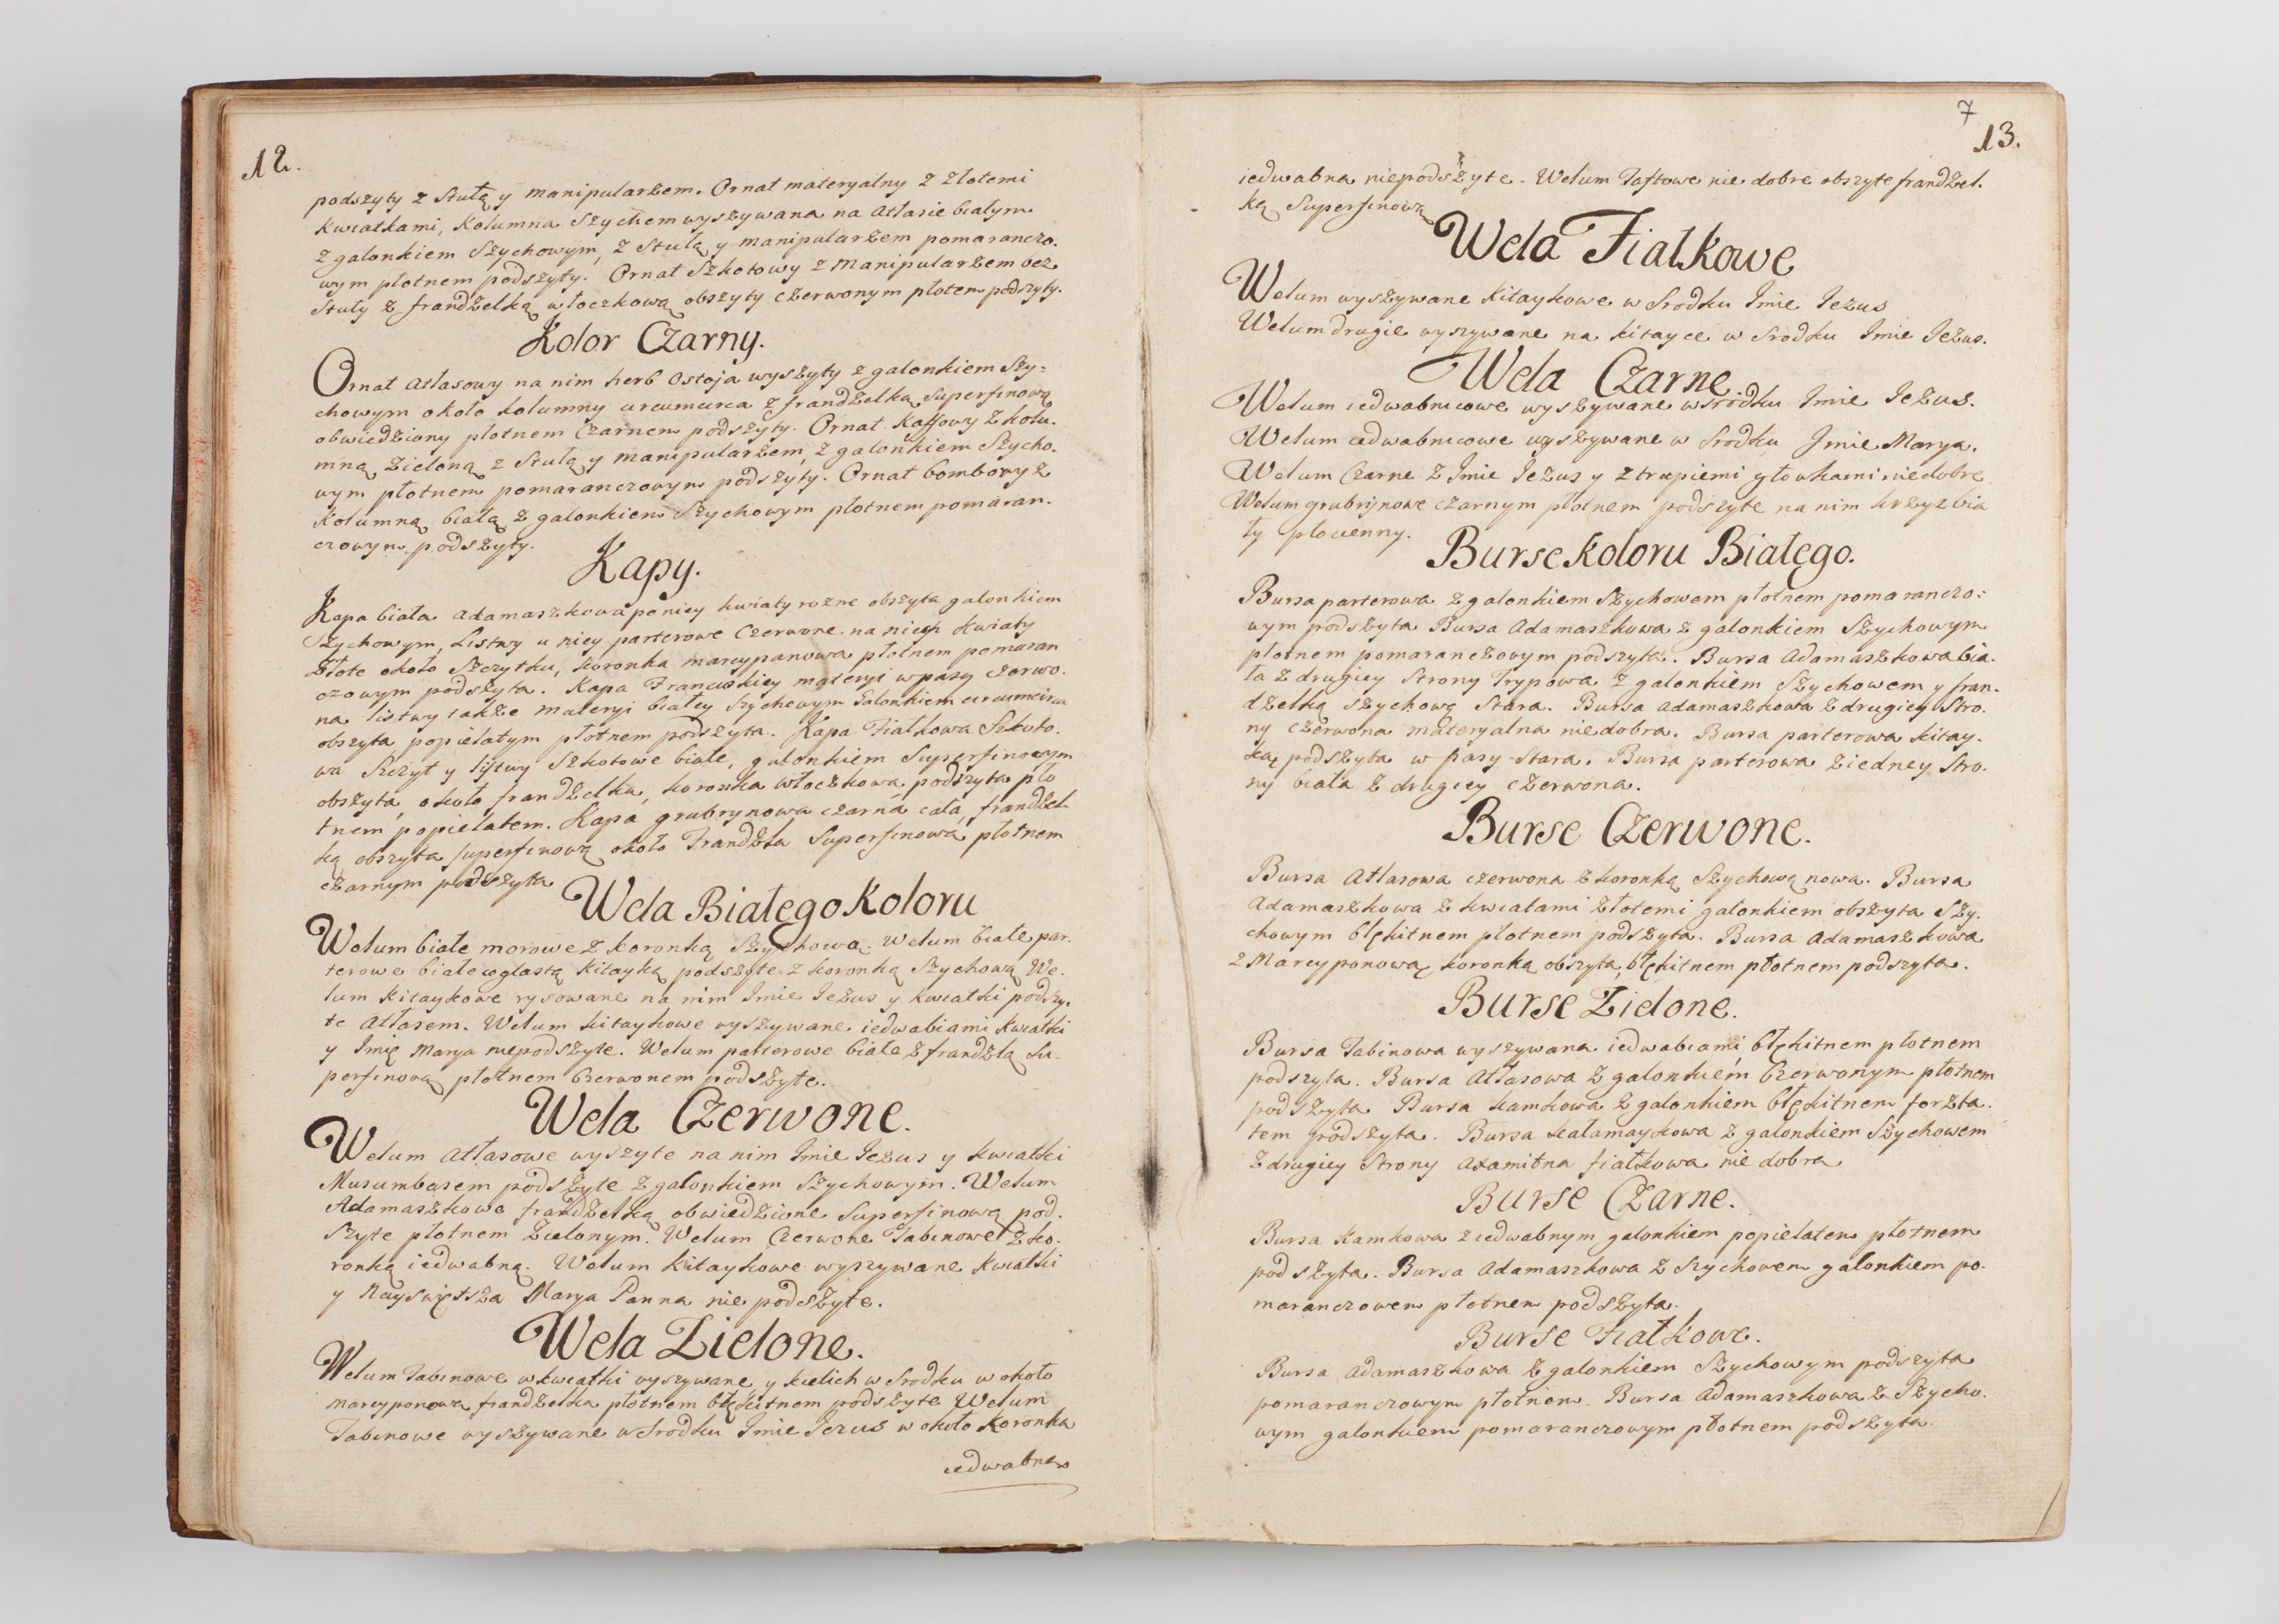 12.
podszyty z Stułą y manipularzem. Ornat materyalny z złotemi
kwiatkami, Kolumna Szychem wyszywana na Atłasie białym
z galonkiem Szychowym, z Stułą y manipularzem pomaranczo.
wym płotnem podszyty. Ornat Szkotowy z Manipularzem bez
Stuły z frandzelką włoczkową obszyty czerwonym płotem podszyty.
Kolor Czarny.
Ornat Atłasowy na nim herb Ostoja wyszyty z galonkiem Szy:
chowym około kolumny circumcirca z frandzelką Superfinową
obwiedziony płotnem Czarnem podszyty. Ornat Kaffowy z kolu.
mną Zieloną z Stułą y manipularzem, z galonkiem Szycho.
wym płotnem pomaranczowym podszyty. Ornat bombowy z
Kolumną białą z galonkiem Szychowym płotnem pomaran.
czowym podszyty.
Kapy.
Kapa biała adamaszkowa po niey kwiaty rozne obszyta galonkiem
Szychowym, Listwy u niey parterowe Czerwone na nich kwiaty
Złote około Szczytku, koronka marcypanowa płotnem pomaran
czowym podszyta. Kapa Francuskiey materyi w pasy czerwo.
na listwy także materyi białey Szychowym Galonkiem circumcirca
obszyta popielatym płotnem podszyta. Kapa Fiałkowa Szkoto.
wa Szczyt y listwy Szkotowe białe, galonkiem Superfinowym
obszyta, około frandzelka, koronka włoczkowa podszyta pło
tnem popielatem. Kapa grubrynowa czarna cała, frandzel
ką obszyta superfinową około Frandzla Superfinowa płotnem
czarnym podszyta
Wela Białego Koloru
Welum białe morowe z koronką Szychową. Welum białe par.
terowe białe wglastą kitayką podszyte z koronką Szychową We.
lum Kitaykowe rysowane na nim Jmie Jezus y kwiatki podszy.
te Atłasem. Welum kitaykowe wyszywane iedwabiami kwiatki
y Jmię Marya niepodszyte. Welum parterowe białe z frandzlą Su.
perfinową płotnem Czerwonem podszyte.
Wela Czerwone.
Welum Atłasowe wyszyte na nim Jmie Jezus y kwiatki
Musumbasem podszyte z galonkiem Szychowym. Welum
Adamaszkowe frandzelką obwiedzione Superfinową pod.
Szyte płotnem Zielonym. Welum Czerwone Tabinowe z ko.
ronką iedwabną. Welum kitaykowe wyszywane kwiatki
y Nayswiętsza Marya Panna nie podszyte.
Wela Zielone.
Welum Tabinowe w kwiatki wyszywane y kielich w Srodku w około
marcyponowa frandzelka płotnem błękitnem podszyte Welum
Tabinowe wyszywane w Srodku Jmie Jezus w około Koronka
iedwabna
7
13.
iedwabna niepodszyte. Welum Taftowe nie dobre obszyte frandzel.
ką Superfinową
Wela Fiałkowe
Welum wyszywane Kitaykowe w Srodku Jmie Jezus
Welum drugie wyszywane na kitayce w Srodku Jmie Jezus.
Wela Czarne
Welum iedwabnicowe wyszywane w srodku Jmie Jezus.
Welum iedwabnicowe wyszywane w Srodku Jmie Marya.
Welum Czarne z Jmie Jezus y z trupiemi głowkami niedobre
Welum grubrynowe czarnym płotnem podszyte na nim krzyz bia
ły płocienny.
Burse koloru Białego.
Bursa parterowa z galonkiem Szychowem płotnem pomaranczo:
wym podszyta Bursa Adamaszkowa z galonkiem Szychowym
płotnem pomaranczowym podszyta. Bursa Adamaszkowa bia.
ła z drugiey Strony Trypowa z galonkiem Szychowem y fran.
dzelką szychową Stara. Bursa adamaszkowa z drugiey Stro.
ny czerwona materyalna niedobra. Bursa parterowa kitay.
ką podszyta w pasy Stara. Bursa parterowa z iedney Stro.
ny biała z drugiey czerwona.
Burse Czerwone.
Bursa Atłasowa czerwona z koronką Szychową nowa. Bursa
Adamaszkowa z kwiatami złotemi galonkiem obszyta Szy.
chowym błękitnem płotnem podszyta. Bursa Adamaszkowa
z Marcyponową koronką obszyta, błękitnem płotnem podszyta.
Burse Zielone.
Bursa Tabinowa wyszywana iedwabiami błękitnem płotnem
podszyta. Bursa Atłasowa z galonkiem Czerwonym płotnem
podszyta Bursa kamkowa z galonkiem błękitnem forszta.
tem podszyta. Bursa kałamaykowa z galonkiem Szychowem
z drugiey Strony Axamitna fiałkowa nie dobra
Burse Czarne.
Bursa Kamkowa z iedwabnym galonkiem popielatem płotnem
podszyta. Bursa Adamaszkowa z Szychowem galonkiem po.
maranczowem płotnem podszyta.
Burse Fiałkowe.
Bursa Adamaszkowa z galonkiem Szychowym podszyta
pomaranczowym płotnem. Bursa Adamaszkowa z Szycho.
wym galonkiem pomaranczowym płotnem podszyta.